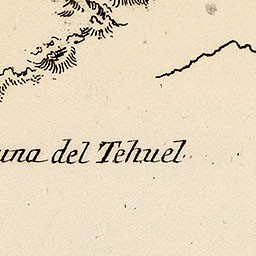 una del Tehuel